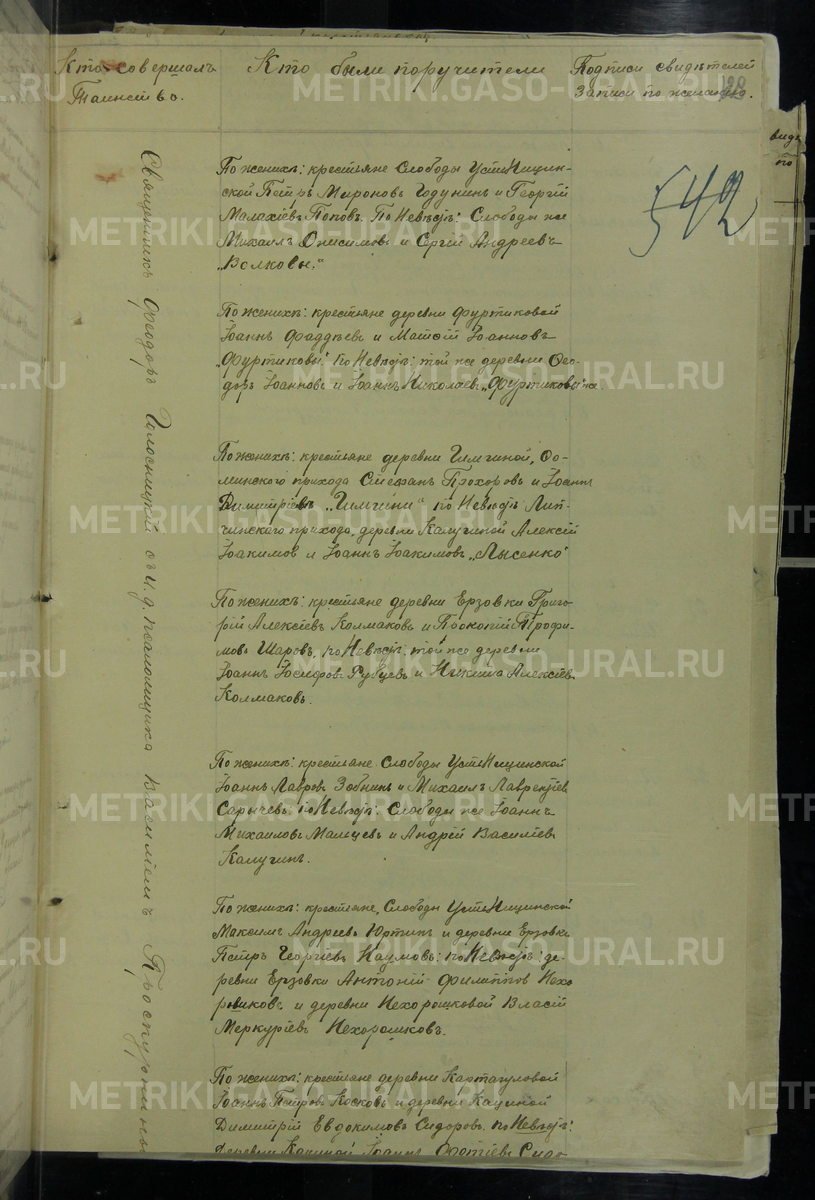 Кто совершалъ
Таинство.
Кто были поручители
Подписи свидѣтелей
записи по желанію.
542
По женихѣ: крестьяне Слободы УстьНицин-
ской Петръ Мироновъ Годунинъ и Георгій
Малахіевъ Поповъ. По Невѣстѣ: Слободы же
Михаилъ Онисимовъ и Сергій Андреевъ
„Волковы."
По женихѣ: крестьяне деревни Фуртиковой
Іоаннъ Фаддѣевъ и Матѳій Іоанновъ
„Фуртиковы". по Невѣстѣ: той же деревни Ѳео-
доръ Іоанновъ и Іоаннъ Николаевъ „Фуртиковы" же.
По женихѣ: крестьяне деревни Гилгиной, Ѳо-
минскаго прихода Стефанъ Прохоровъ и Іоаннъ
Димитріевъ по Невѣстѣ Лип-
чинскаго прихода, деревни Калугиной Алексій
Іоакимов и Іоаннъ Іоакимовъ „Лысенко"
По женихѣ: крестьяне деревни Ерзовки Григо-
рій Алексіевъ Колмаковъ и Прокопій Трофи-
мовъ Шаровъ, по Невѣстѣ: той же деревни
Іоаннъ Іосифовъ Рубцевъ и Никита Алексіевъ
Колмаковъ.
По женихѣ: крестьяне Слободы УстьНицинской
Іоаннъ Лавровъ Зобнинъ и Михаилъ Лаврентіев
Сарычевъ. по Невѣстѣ: Слободы же Іоаннъ
Михаиловъ Мальцевъ и Андрей Василіевъ
Калугинъ.
По женихѣ: крестьяне, Слободы УстьНицинской
Максимъ Андреевъ Юртинъ и деревни Ерзовки
Петръ Георгіевъ Наумовъ: по Невѣстѣ: де-
ревни Ерзовки Антоній Филиппов Нехо
рошковъ и деревни Нехорошковой Власій
Меркуріевъ Нехорошковъ.
По женихѣ: крестьяне деревни Картагуловой
Іоаннъ Петров Косковъ и деревни Кациной
Димитрій Евдокимовъ Сидоровъ. по Невѣстѣ:
деревни Іоаннъ Фотіевъ Сидо-
Священникъ Ѳеодоръ съ и. д. псаломщика Василіемъ
видѣ
по
METRIKI.GASO-URAL.RU